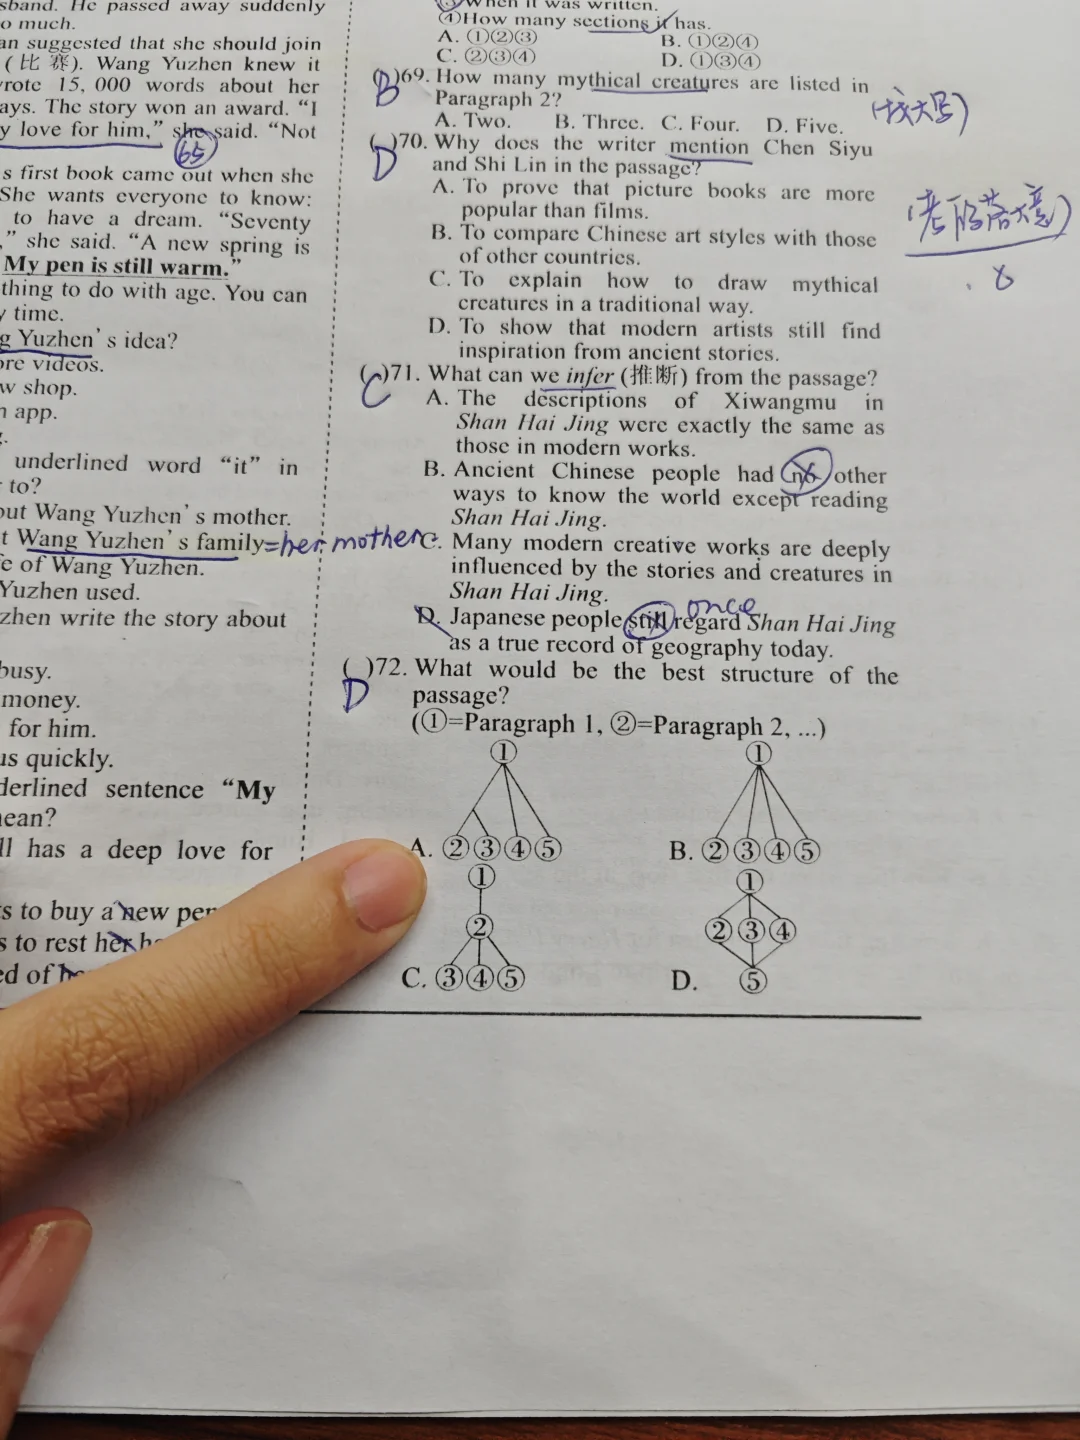 sband. He passed away suddenly
o much.
an suggested that she should join
(比 赛). Wang Yuzhen knew it
rote 15, 000 words about her
ays. The story won an award. “I
y love for him,” she said. “Not
65
s first book came out when she
She wants everyone to know:
to have a dream. “Seventy
,” she said. “A new spring is
My pen is still warm.”
thing to do with age. You can
y time.
g Yuzhen’s idea?
ore videos.
w shop.
n app.
underlined word “it” in
to?
out Wang Yuzhen’s mother.
t Wang Yuzhen’s family=her mother
e of Wang Yuzhen.
Yuzhen used.
zhen write the story about
busy.
money.
for him.
us quickly.
derlined sentence “My
nean?
ll has a deep love for
s to buy a new pen
s to rest her h
ed of
③When it was written.
④How many sections it has.
A. ①②③ B. ①②④
C. ②③④ D. ①③④
(B)69. How many mythical creatures are listed in
Paragraph 2?
A. Two. B. Three. C. Four. D. Five.
(找大写)
(D)70. Why does the writer mention Chen Siyu
and Shi Lin in the passage?
A. To prove that picture books are more
popular than films.
B. To compare Chinese art styles with those
of other countries.
C. To explain how to draw mythical
creatures in a traditional way.
D. To show that modern artists still find
inspiration from ancient stories.
(考段落大意)
(C)71. What can we infer (推断) from the passage?
A. The descriptions of Xiwangmu in
Shan Hai Jing were exactly the same as
those in modern works.
B. Ancient Chinese people had no other
ways to know the world except reading
Shan Hai Jing.
C. Many modern creative works are deeply
influenced by the stories and creatures in
Shan Hai Jing.
once
D. Japanese people still regard Shan Hai Jing
as a true record of geography today.
(D)72. What would be the best structure of the
passage?
(①=Paragraph 1, ②=Paragraph 2, ...)
① ①
A. ②③④⑤ B. ②③④⑤
① ①
② ②③④
C. ③④⑤ D. ⑤